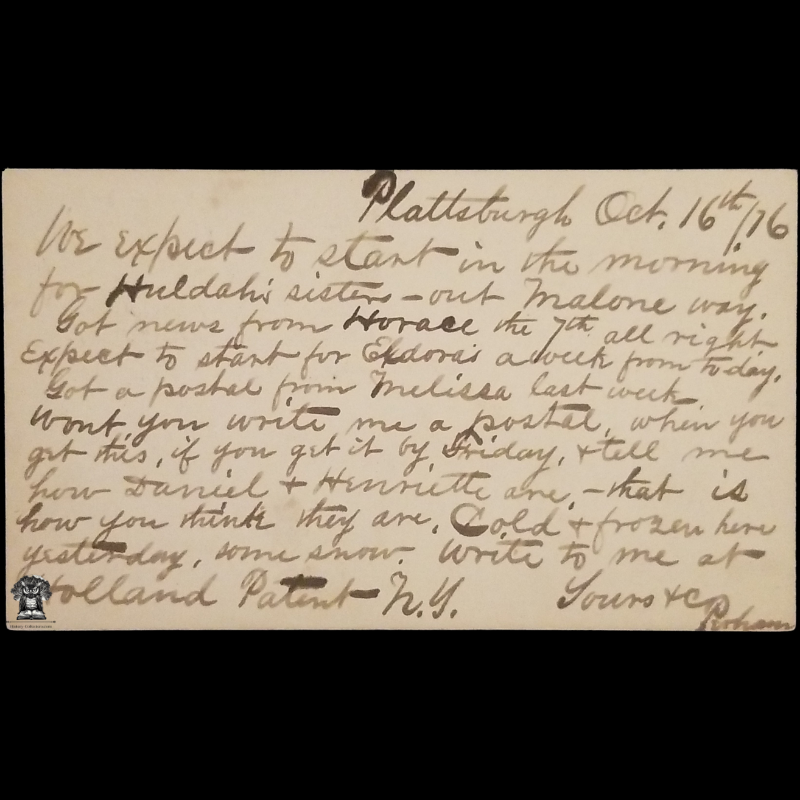 Plattsburgh Oct. 16th/76
We expect to start in the morning
for Huldah's sisters - out Malone way.
Got news from Horace the 7th all right
Expect to start for Eldora's a week from to day.
Got a postal from Melissa last week
Wont you write me a postal, when you
get this, if you get it by Friday, & tell me
how Daniel & Henriette are, - that is
how you think they are. Cold & frozen here
yesterday, some snow. Write to me at
Holland Patent - N.Y. Yours &c